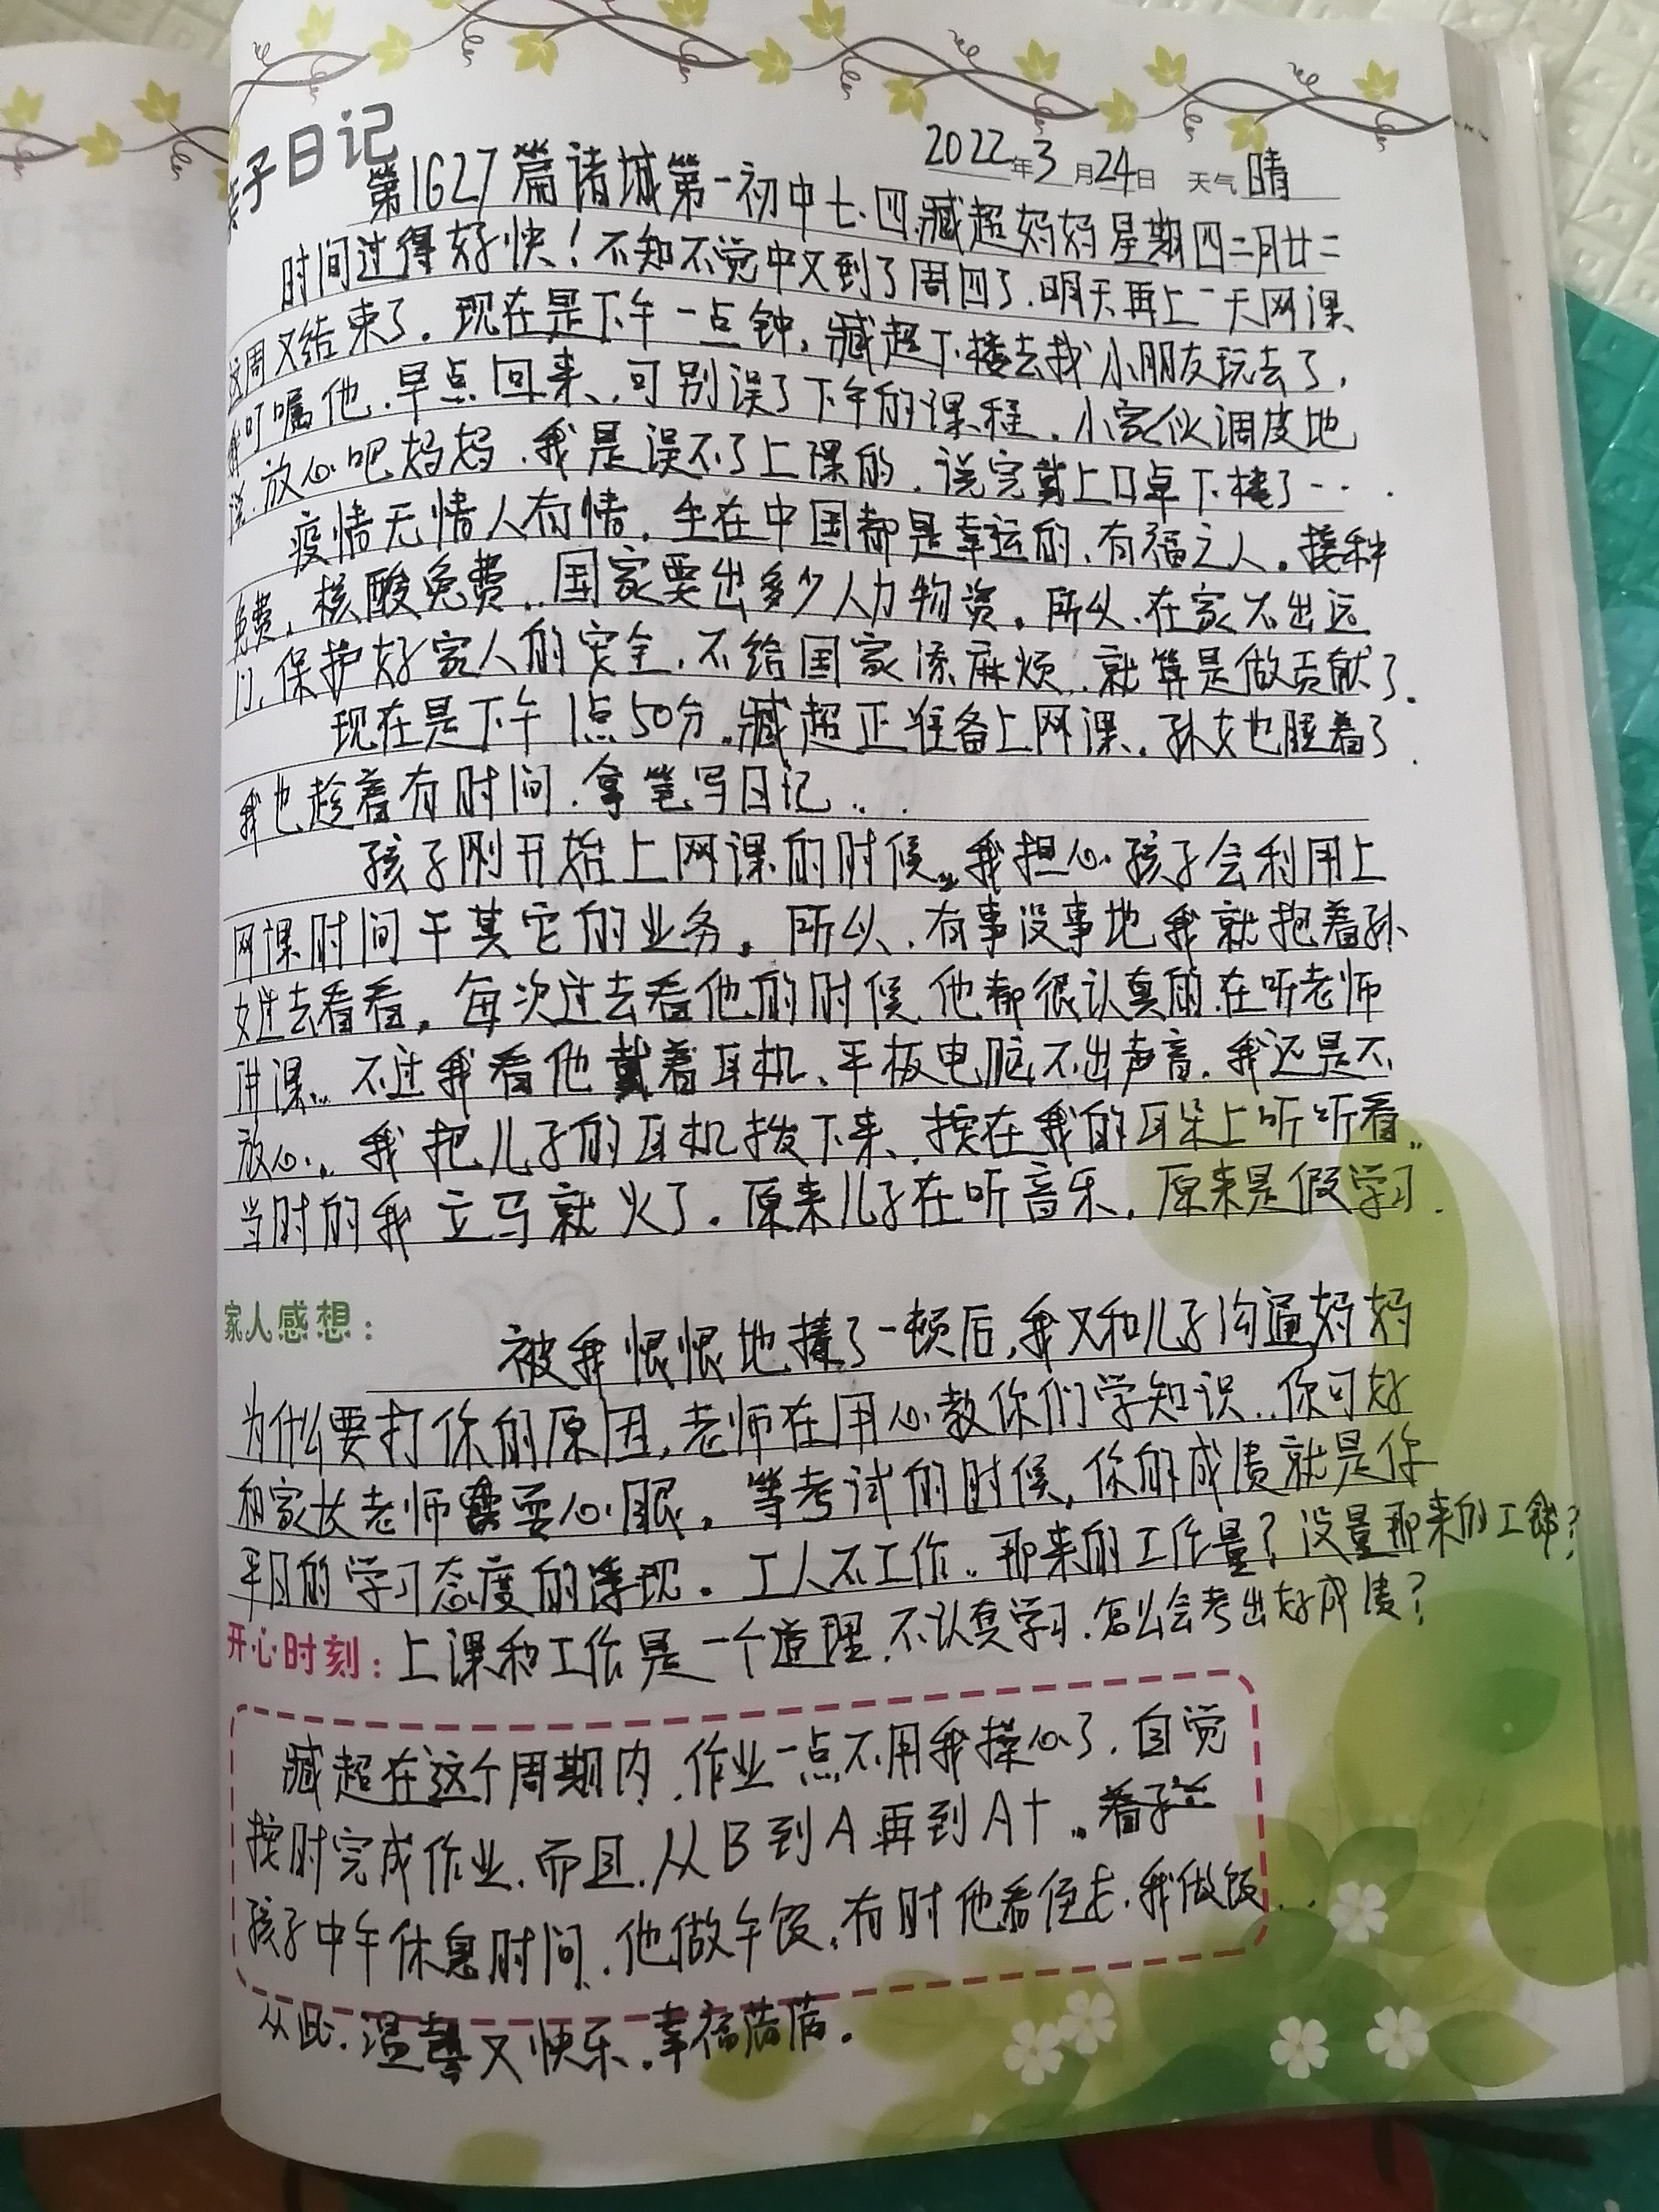 亲子日记
2022年3月24日 天气 晴
第1627篇诸城第一初中七.四.臧超妈妈星期四二月廿二
时间过得好快！不知不觉中又到了周四了.明天再上一天网课、
这周又结束了.现在是下午一点钟,臧超下楼去找小朋友玩去了,
我叮嘱他.早点回来.可别误了下午的课程.小家伙调皮地
说.放心吧妈妈.我是误不了上课的.说完戴上口卓下楼了…
疫情无情人有情.生在中国都是幸运的.有福之人.接种
免费,核酸免费..国家要出多少人力物资.所以.在家不出远
门.保护好家人的安全.不给国家添麻烦..就算是做贡献了.
现在是下午1点50分.臧超正准备上网课.孙女也睡着了.
我也趁着有时间.拿笔写日记...
孩子刚开始上网课的时候..我担心孩子会利用上
网课时间干其它的业务.所以.有事没事地我就抱着孙
女过去看看.每次过去看他的时候.他都很认真的.在听老师
讲课..不过我看他戴着耳机、平板电脑不出声音.我还是不
放心..我把儿子的耳机拨下来、按在我的耳朵上听听看..
当时的我立马就火了.原来儿子在听音乐.原来是假学习.
家人感想：
被我恨恨地揍了一顿后,我又和儿子沟通妈妈
为什么要打你的原因,老师在用心教你们学知识..你可好
和家长老师耍心眼.等考试的时候,你的成绩就是你
平日的学习态度的浮现.工人不工作..那来的工作量？没量那来的工钱？
开心时刻：上课和工作是一个道理.不认真学习.怎么会考出好成绩？
臧超在这个周期内.作业一点不用我操心了.自觉
按时完成作业.而且.从B到A再到A+..
孩子中午休息时间.他做午饭.有时他看侄女.我做饭...
从此.温馨又快乐.幸福满满.